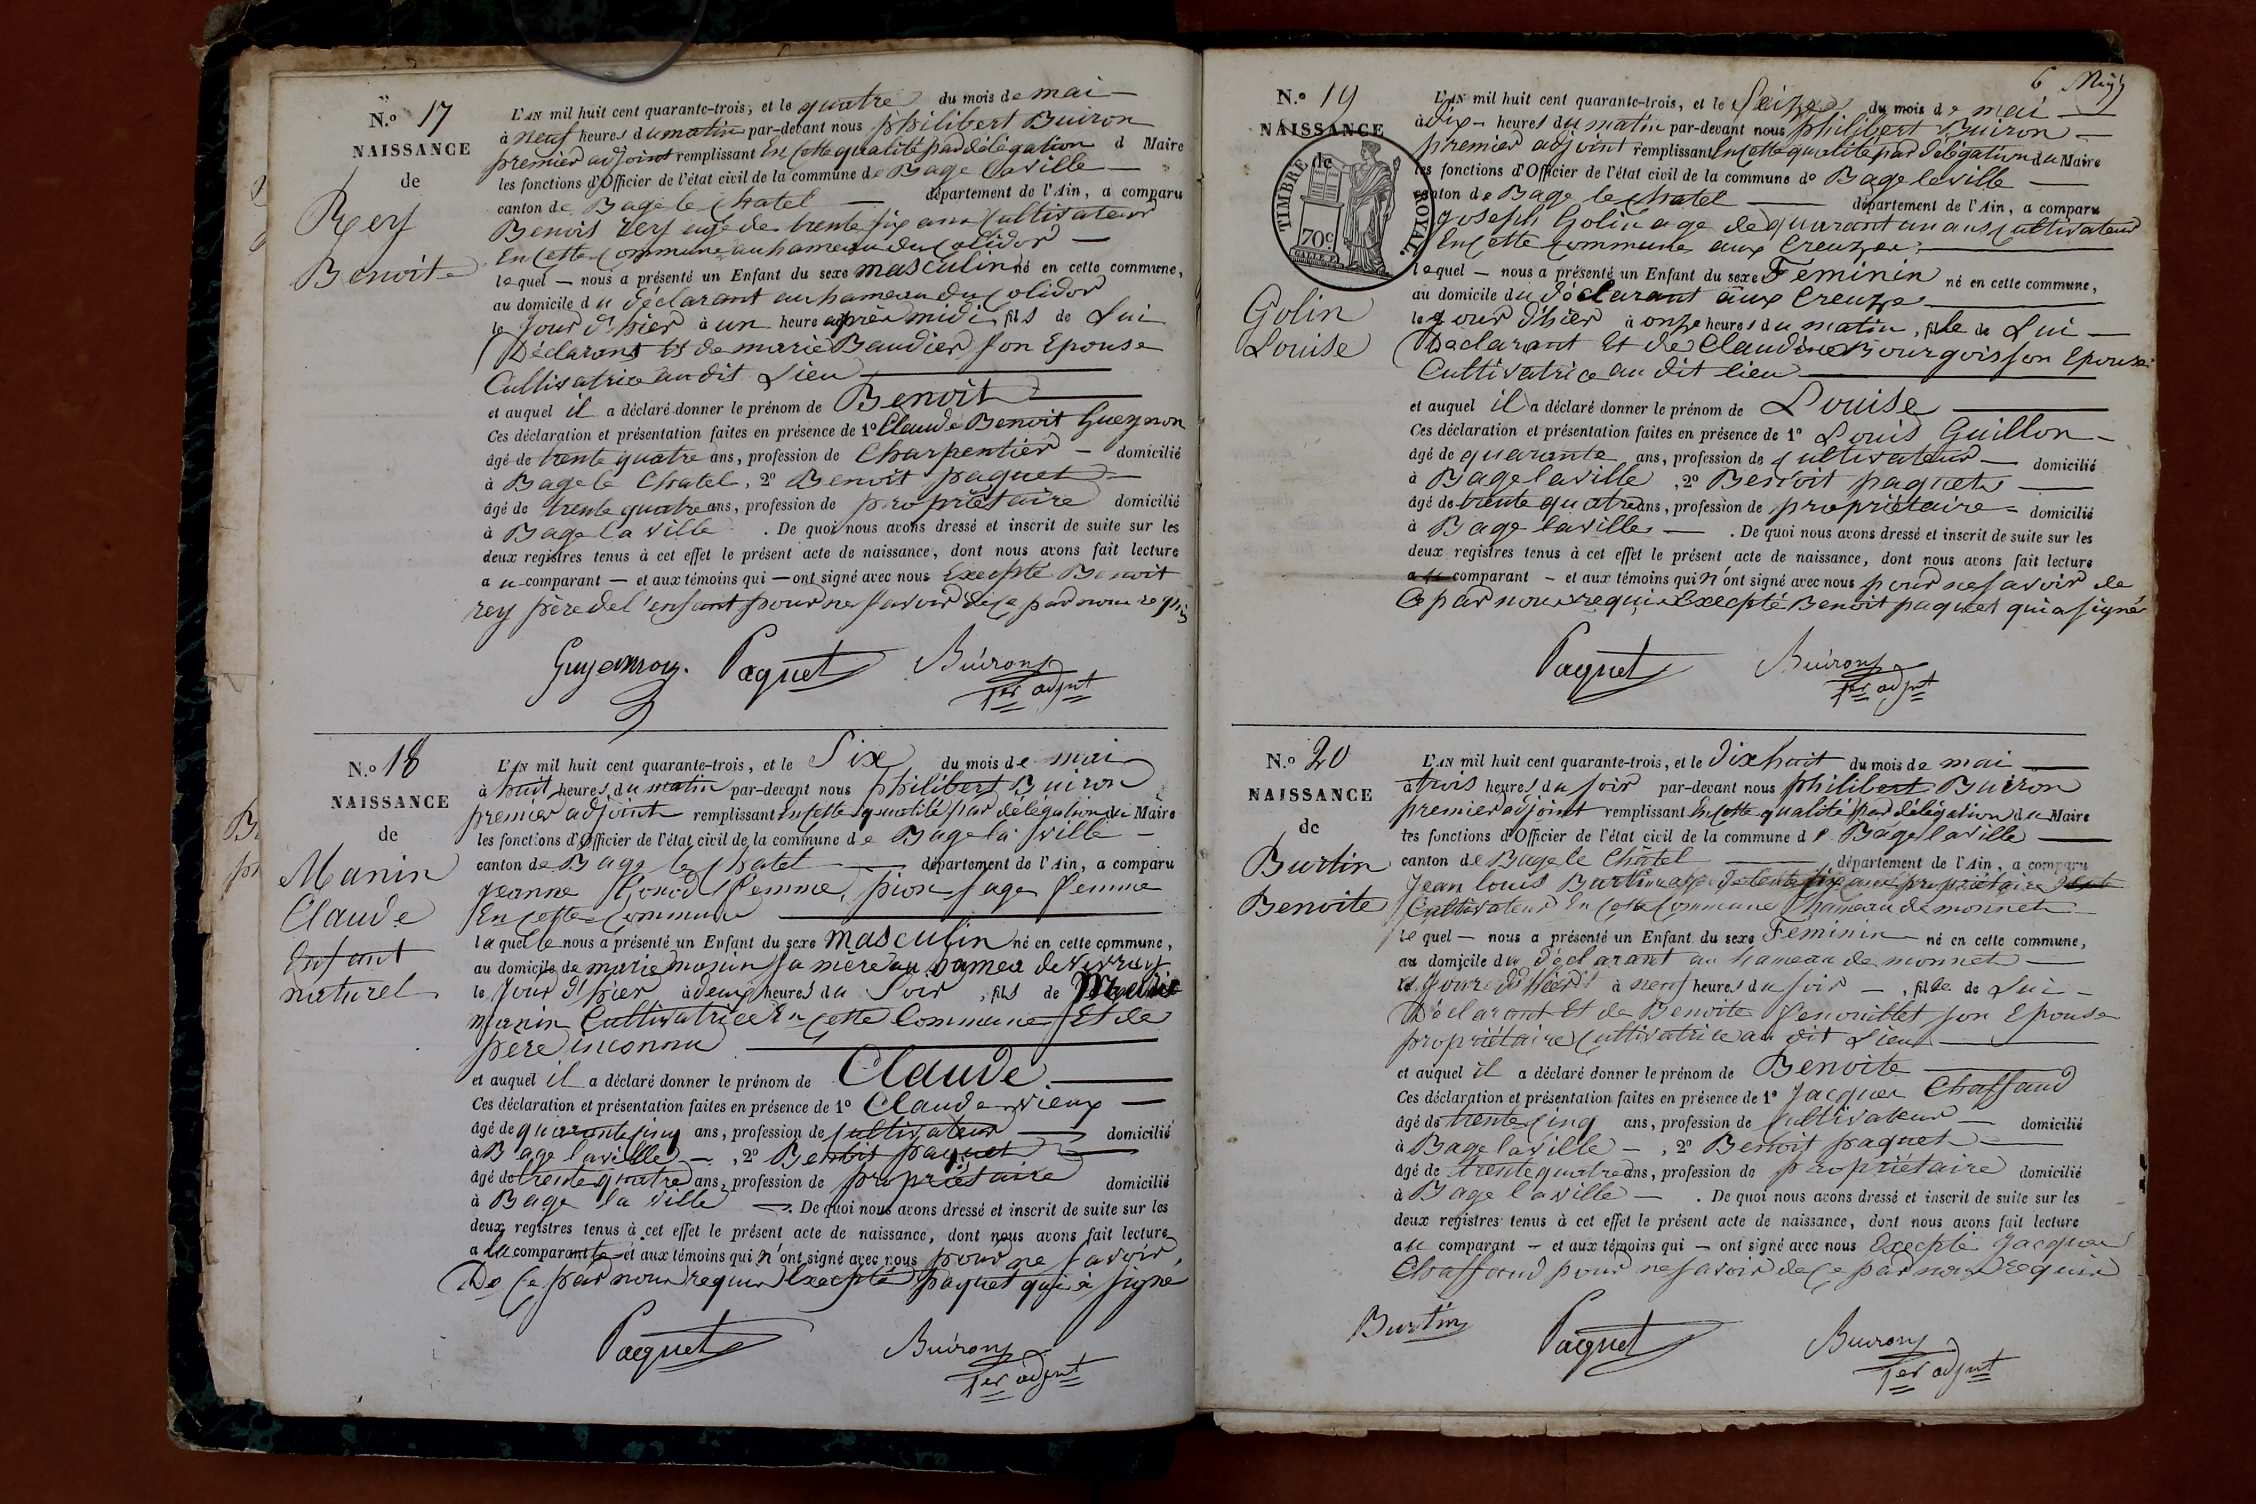 N.º 17
NAISSANCE
de
Rey
Benoit
L'AN mil huit cent quarante-trois, et le quatre du mois de mai
à neuf heures du matin par-devant nous philibert Buiron
premier adjoint remplissant En cette qualité par délégation d Maire
les fonctions d'Officier de l'état civil de la commune de Bage la ville
canton de Bage le Chatel département de l'Ain, a comparu
Benois rey agé de trente six ans Cultivateur
En cette commune au hameau du Colidor
lequel nous a présenté un Enfant du sexe masculin né en cette commune,
au domicile du déclarant au hameau du Colidor
le jour d'hier à un heure après midi, fils de Lui
Déclarant Et de marie Baudier son Epouse
Cultivatrice au dit Lieu
et auquel il a déclaré donner le prénom de Benoit
Ces déclaration et présentation faites en présence de 1º Claude Benoit
âgé de trente quatre ans, profession de Charpentier domicilié
à Bage le Chatel, 2º Benoit paquet
âgé de trente quatre ans, profession de propriétaire domicilié
à Bage la ville. De quoi nous avons dressé et inscrit de suite sur les
deux registres tenus à cet effet le présent acte de naissance, dont nous avons fait lecture
au comparant et aux témoins qui ont signé avec nous Excepté Benoit
rey père de l'enfant pour ne savoir de ce par nous requis
Paquet Buiron
1er adjnt
N.º 18
NAISSANCE
de
Manin
Claude
Enfant
naturel
L'AN mil huit cent quarante-trois, et le Six du mois de mai
à huit heures du matin par-devant nous philibert Buiron
premier adjoint remplissant En cette qualité par délégation du Maire
les fonctions d'Officier de l'état civil de la commune de Bage la ville
canton de Bage le Chatel département de l'Ain, a comparu
jeanne femme pion sage femme
En cette Commune
laquelle nous a présenté un Enfant du sexe masculin né en cette commune,
au domicile de marie manin sa mère au hameau de
le jour d'hier à deux heures du Soir, fils de Marie
Manin Cultivatrice En cette Commune Et de
père inconnu
et auquel il a déclaré donner le prénom de Claude.
Ces déclaration et présentation faites en présence de 1º Claude vieux
âgé de quarante cinq ans, profession de Cultivateur domicilié
à Bage la ville, 2º Benoit paquet
âgé de trente quatre ans, profession de propriétaire domicilié
à Bage la ville. De quoi nous avons dressé et inscrit de suite sur les
deux registres tenus à cet effet le présent acte de naissance, dont nous avons fait lecture
a la comparante et aux témoins qui n'ont signé avec nous pour ne savoir,
De ce par nous requis Excepté paquet qui a signé
Paquet Buiron
1er adjnt
6
N.º 19
NAISSANCE
de
TIMBRE ROYAL.
70 c.
Golin
Louise
L'AN mil huit cent quarante-trois, et le Seize du mois de mai
à Dix heures du matin par-devant nous philibert Buiron
premier adjoint remplissant En cette qualité par délégation du Maire
les fonctions d'Officier de l'état civil de la commune de Bage la ville
canton de Bage le Chatel département de l'Ain, a comparu
joseph Golin age de quarant un ans Cultivateur
En cette Commune aux Creuzes
lequel nous a présenté un Enfant du sexe Feminin né en cette commune,
au domicile du déclarant aux Creuzes
le jour d'hier à onze heures du matin, fille de Lui
Declarant Et de Claudine Bourgois son Epouse
Cultivatrice au dit lieu
et auquel il a déclaré donner le prénom de Louise
Ces déclaration et présentation faites en présence de 1º Louis Guillon
âgé de quarante ans, profession de Cultivateur domicilié
à Bage la ville, 2º Benoit paquet
âgé de trente quatre ans, profession de propriétaire domicilié
à Bage la ville. De quoi nous avons dressé et inscrit de suite sur les
deux registres tenus à cet effet le présent acte de naissance, dont nous avons fait lecture
au comparant et aux témoins qui n'ont signé avec nous pour ne savoir de
Ce par nous requis Excepté Benoit paquet qui a signé
Paquet Buiron
1er adjnt
N.º 20
NAISSANCE
de
Burtin
Benoite
L'AN mil huit cent quarante-trois, et le dix huit du mois de mai
à trois heures du soir par-devant nous philibert Buiron
premier adjoint remplissant En cette qualité par délégation du Maire
les fonctions d'Officier de l'état civil de la commune de Bage la ville
canton de Bage le Châtel département de l'Ain, a comparu
Jean louis Burtin age de trente six ans propriétaire
Cultivateur En cette Commune hameau de monnet
lequel nous a présenté un Enfant du sexe Feminin né en cette commune,
au domicile du déclarant au hameau de monnet
le jour d'hier à neuf heures du soir, fille de Lui
Déclarant Et de Benoite fenouillet son Epouse
propriétaire Cultivatrice au dit Lieu
et auquel il a déclaré donner le prénom de Benoite
Ces déclaration et présentation faites en présence de 1º Jacques Chaffaud
âgé de trente cinq ans, profession de Cultivateur domicilié
à Bage la ville, 2º Benoit paquet
âgé de trente quatre ans, profession de propriétaire domicilié
à Bage la ville. De quoi nous avons dressé et inscrit de suite sur les
deux registres tenus à cet effet le présent acte de naissance, dont nous avons fait lecture
au comparant et aux témoins qui ont signé avec nous Excepté Jacques
Chaffaud pour ne savoir de ce par nous requis
Burtin Paquet Buiron
1er adjnt